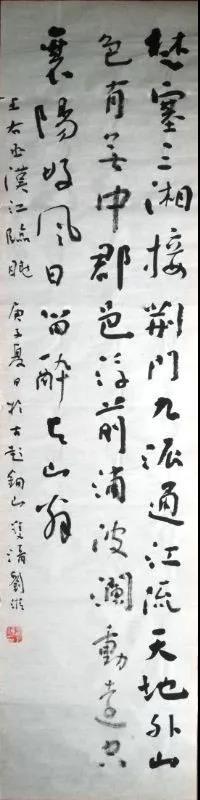 楚塞三湘接荆門九派通江流天地外山
色有無中郡邑浮前浦波瀾動遠空
襄陽好風日留醉与山翁
王右丞漢江臨眺 庚子夏日於古越銅山 劉